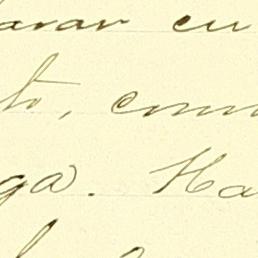 arar en
to, com
ga. Ha